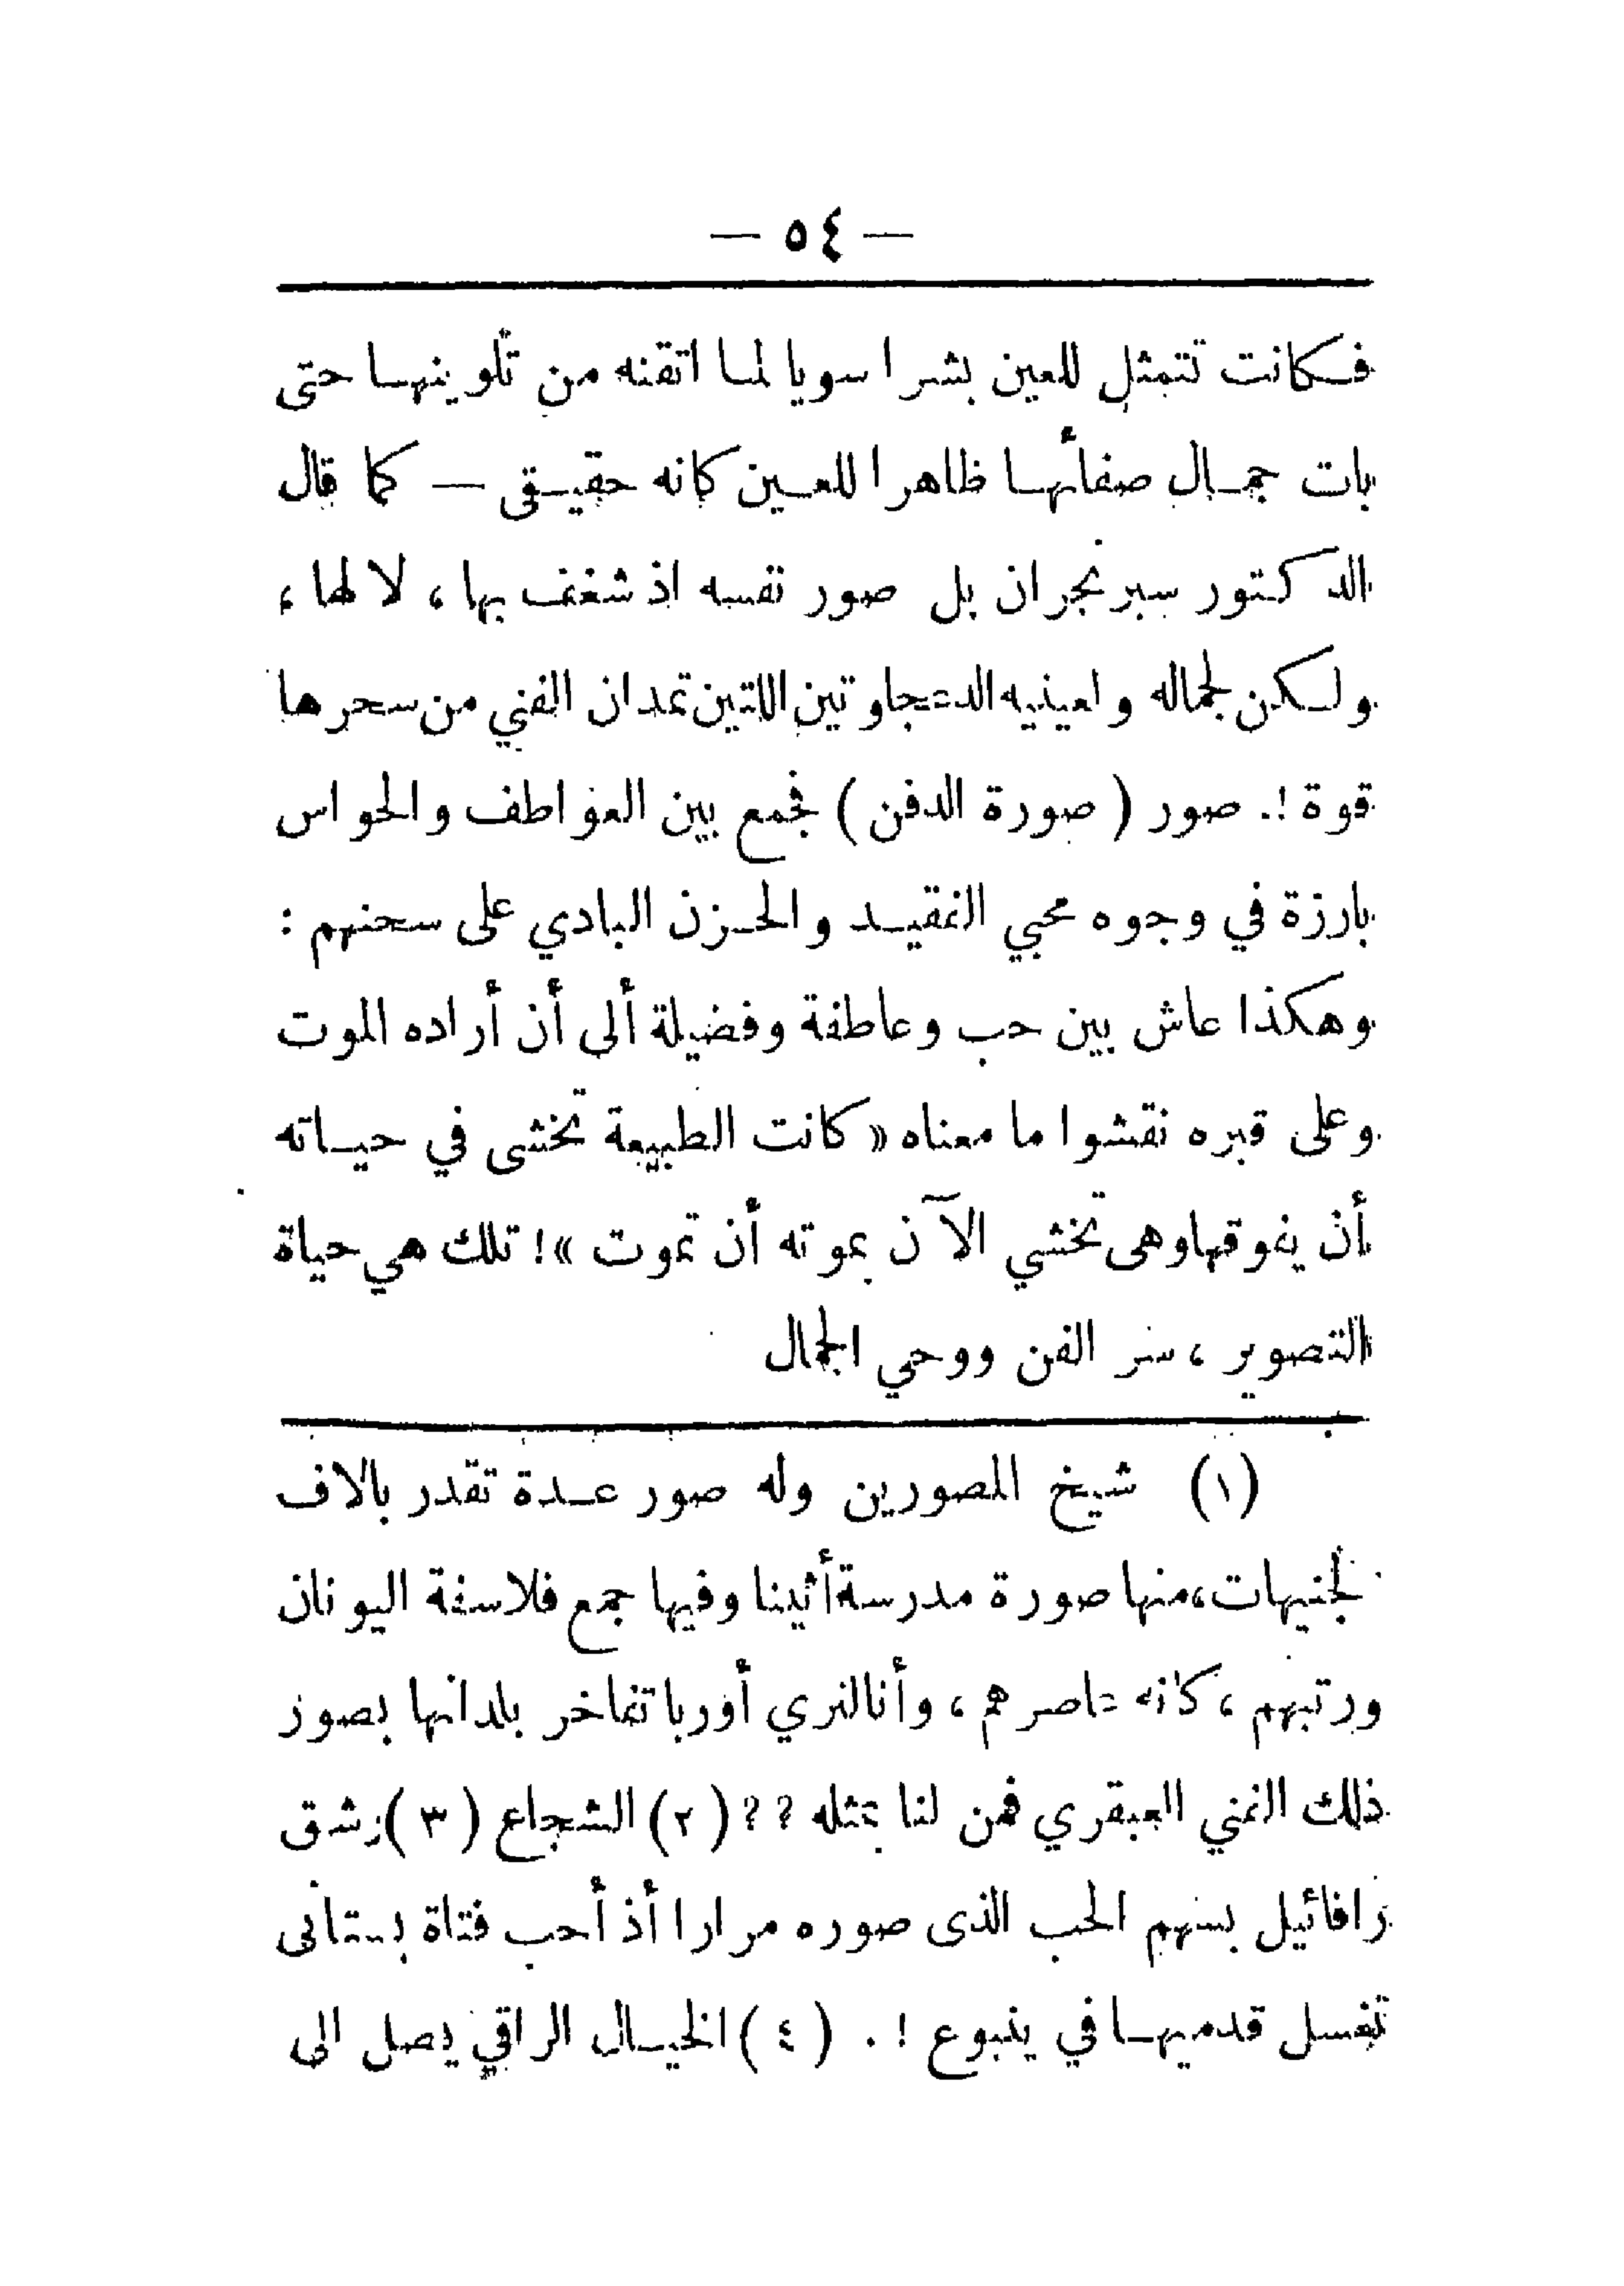 — ٥٤ —
فكانت تتمثل للعين بشرا سويا لما اتقنه من تلوينها حتى
بات جمال صفائها ظاهرا للعين كانه حقيقى — كما قال
الدكتور سبرنجران بل صور نفسه اذ شغف بها ، لا لها ،
ولكن لجماله ولعينيه النجلاوتين اللاتين تمدان الفني من سحرها
قوة !. صور ( صورة الدفن ) فجمع بين العواطف والحواس
بارزة في وجوه محبي الفقيد والحزن البادي على سحنهم :
وهكذا عاش بين حب وعاطفة وفضيلة ألى أن أراده الموت
وعلى قبره نقشوا ما معناه « كانت الطبيعة تخشى في حياته
أن يفوقها وهى تخشي الآن بموته أن تموت » ! تلك هي حياة
التصوير ، سر الفن ووحي الجمال
(١) شيخ المصورين وله صور عدة تقدر بالاف
الجنيهات ، منها صورة مدرسة أثينا وفيها جمع فلاسفة اليونان
ورتبهم ، كانه عاصرهم ، وأنا لنري أوربا تفاخر بلدانها بصور
ذلك الفني العبقري فمن لنا بمثله ؟؟ (٢) الشجاع (٣) رشق
رافائيل بسهم الحب الذى صوره مرارا أذ أحب فتاة بستانى
تغسل قدميها في ينبوع ! . (٤) الخيال الراقي يصل الى